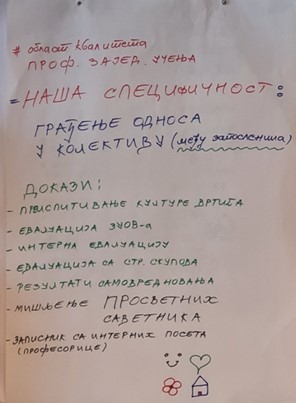 # област квалитета
ПРОФ. ЗАЈЕД. УЧЕЊА
= НАША СПЕЦИФИЧНОСТ:
ГРАЂЕЊЕ ОДНОСА
У КОЛЕКТИВУ (међу запосленима)
ДОКАЗИ:
- ПРЕИСПИТИВАЊЕ КУЛТУРЕ ВРТИЋА
- ЕВАЛУАЦИЈА ЗУОВ-а
- ИНТЕРНА ЕВАЛУАЦИЈУ
- ЕВАЛУАЦИЈА СА СТР. СКУПОВА
- РЕЗУЛТАТИ САМОВРЕДНОВАЊА
- МИШЉЕЊЕ ПРОСВЕТНИХ
САВЕТНИКА
- ЗАПИСНИК СА ИНТЕРНИХ ПОСЕТА
(ПРОФЕСОРИЦЕ)